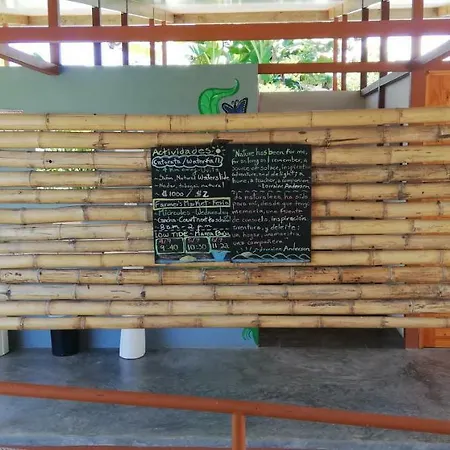 Actividades:
Catarata/Waterfall
Natural Waterslide
- Nadar, tobogan, natural
₡1000 / $2
Farmer's Market Feria
Miercoles - Wednesday
8am - 2pm
LOW TIDE
9:40 10:30 11:22
"Nature has been for me,
for as long as I remember, a
source of solace, inspiration,
adventure, and delight; a
home, a teacher, a companion."
- Lorraine Anderson
"La naturaleza, ha sido
para mi, desde que tengo
memoria, una fuente
de consuelo, inspiración,
aventura, y deleite;
un hogar, una maestra,
una compañera."
- Lorraine Anderson